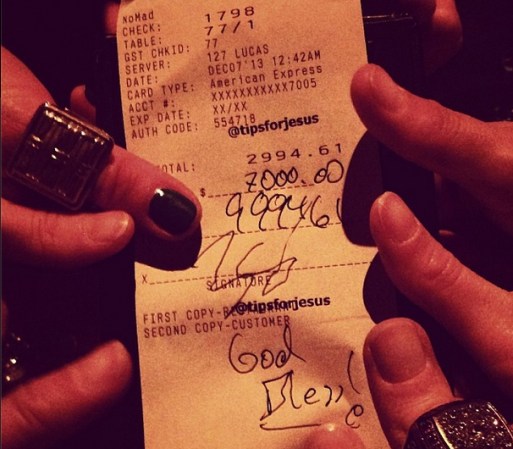 NoMad
CHECK: 1798
TABLE: 77/1
GST CHKID: 77
SERVER: 127 LUCAS
DATE: DEC07'13 12:42AM
CARD TYPE: American Express
ACCT #: XXXXXXXXXXX7005
EXP DATE: XX/XX
AUTH CODE: 554718
@tipsforjesus
OTAL: 2994.61
$ 7000.00
9994.61
X
SIGNATURE
@tipsforjesus
FIRST COPY-
SECOND COPY-CUSTOMER
God
Bless!